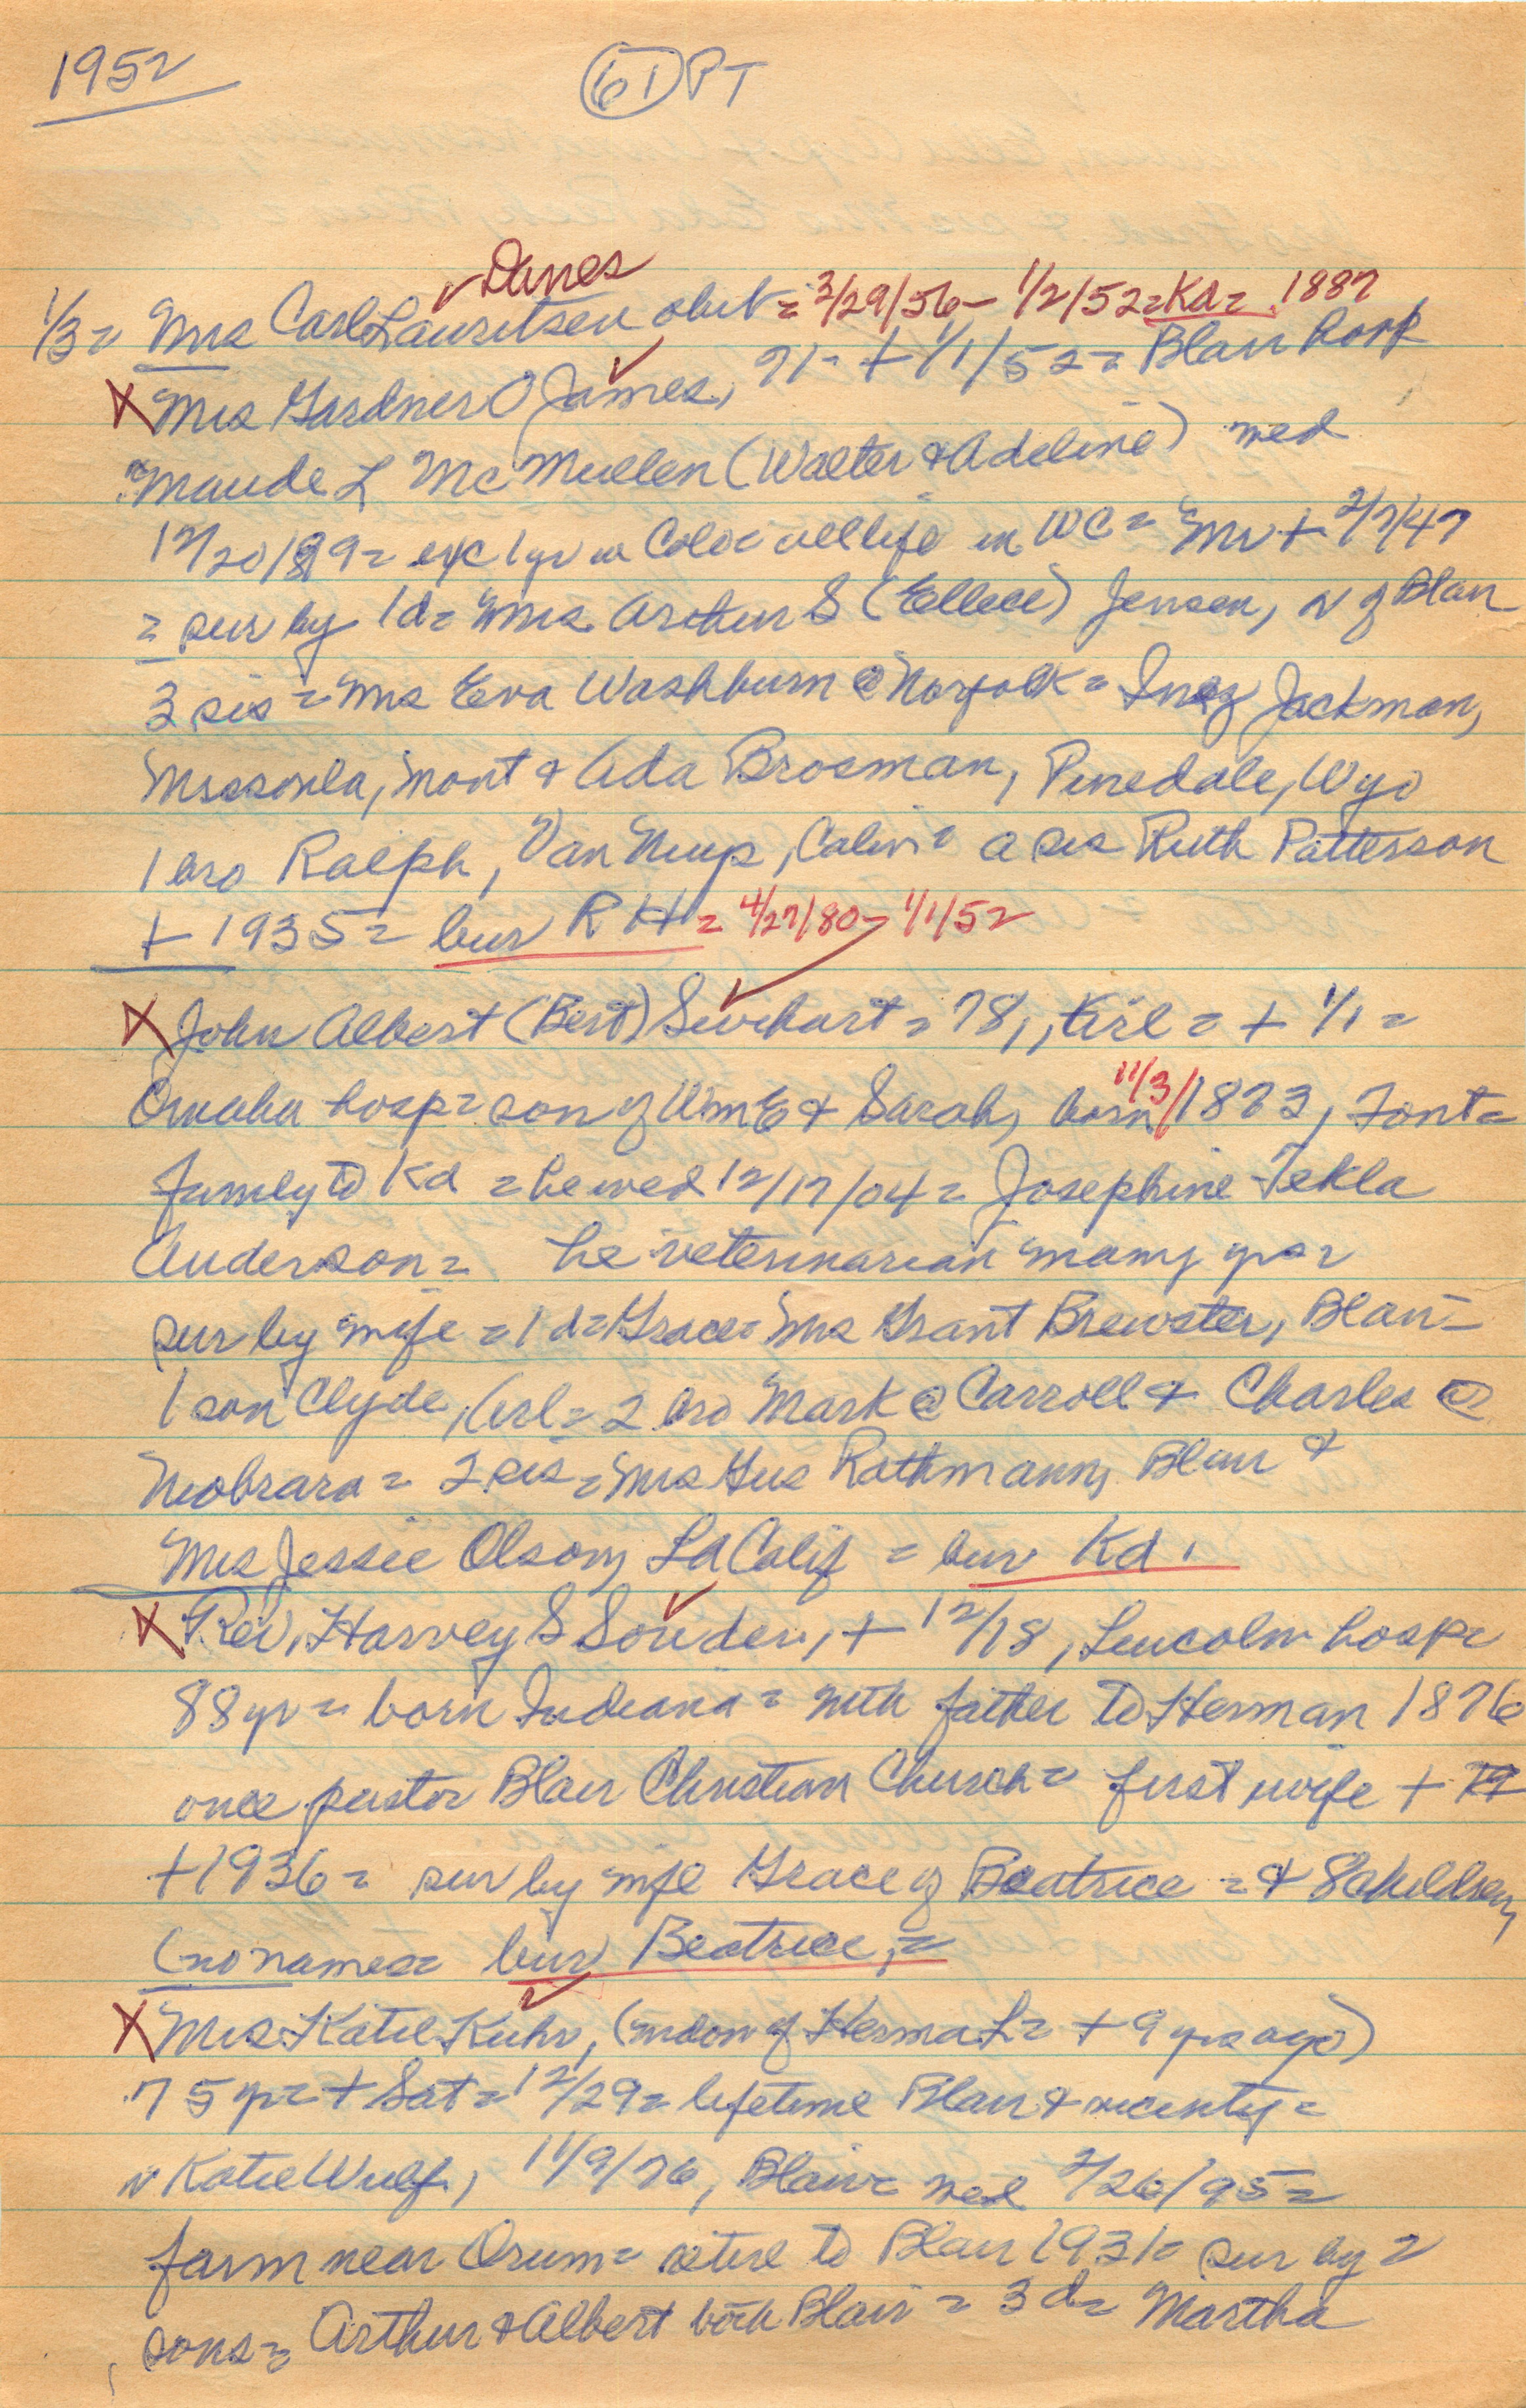 1952
61 PT
Danes
1/3 = Mrs Carl Lauritsen obit = 3/29/56 - 1/2/52 = Kd = 1887
Mrs Gardner O James, 71 - + 1/1/52 = Blair hosp
Maude L McMullen (Walter & Adeline) wed
12/20/1899 = exc 1 yr in Colo = all life in WC = Mr + 2/7/47
= sur by 1 d = Mrs Arthur S (Ellece) Jensen, N of Blair
3 sis = Mrs Eva Washburn @ Norfolk = Inez Jackman,
Missoula, Mont & Ada Brosman, Pinedale, Wyo
1 bro Ralph, Van Nuys, Calif = a sis Ruth Patterson
+ 1935 = bur R H = 4/27/80 - 1/1/52
John Albert (Bert) Swihart = 78, Krl = + 1/1 =
Omaha hosp = son of Wm E & Sarah, born 11/3/1873, Font =
family to Kd = he wed 12/17/04 = Josephine Tekla
Anderson = he veterinarian many yrs =
sur by wife = 1 d = Grace = Mrs Grant Brewster, Blair =
1 son Clyde, Krl = 2 bro Mark @ Carroll & Charles @
Niobrara = 2 sis = Mrs Gus Rathmann, Blair &
Mrs Jessie Olson, LA Calif = bur Kd.
Rev. Harvey S Souder, + 12/18, Lincoln hosp =
88 yr = born Indiana = with father to Herman 1876
once pastor Blair Christian Church = first wife +
+ 1936 = sur by wife Grace of Beatrice = & 8 children,
(no names = bur Beatrice, =
Mrs Katie Kuhr, (widow of Herma L = + 9 yrs ago)
75 yr = + Sat = 12/29 = lifetime Blair & vicinity =
n Katie Wulf, 11/9/76, Blair = wed 2/26/95 =
farm near Orum = retire to Blair 1931 = sur by 2
sons = Arthur & Albert both Blair = 3 d = Martha